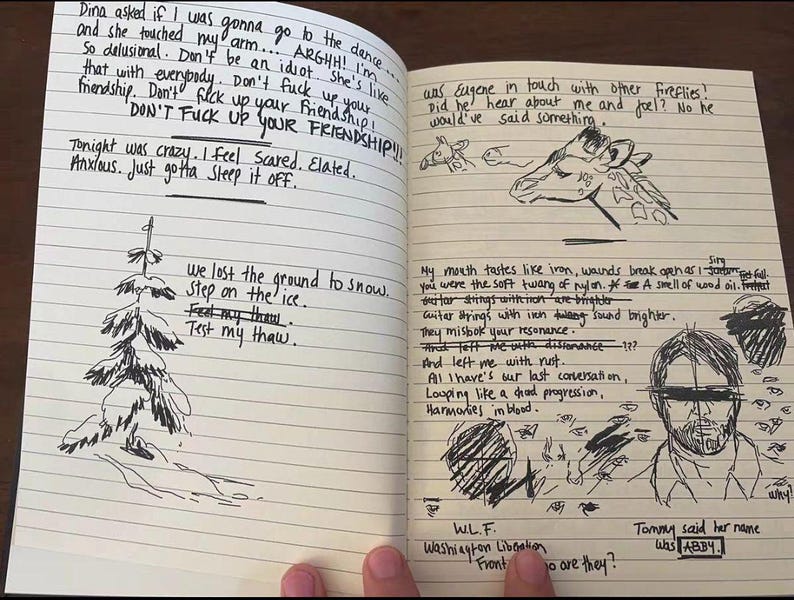 Dina asked if I was gonna go to the dance...
and she touched my arm... ARGHH! I'm
so delusional. Don't be an idiot. She's like
that with everybody. Don't fuck up your
friendship. Don't fuck up your friendship!
DON'T FUCK UP YOUR FRIENDSHIP!!!
Tonight was crazy. I feel scared. Elated.
Anxious. Just gotta sleep it off.
We lost the ground to snow.
Step on the ice.
Feel my thaw.
Test my thaw.
was Eugene in touch with other fireflies?
Did he hear about me and Joel? No he
would've said something.
My mouth tastes like iron, wounds break open as I Sing
You were the soft twang of nylon. A smell of wood oil.
Guitar strings with iron are brighter
Guitar strings with iron twang sound brighter.
They mistook your resonance.
And left me with dissonance ???
And left me with rust.
All I have's our last conversation,
Looping like a chord progression,
Harmonies in blood.
why?
W.L.F.
Washington Liberation
Front who are they?
Tommy said her name
was ABBY.